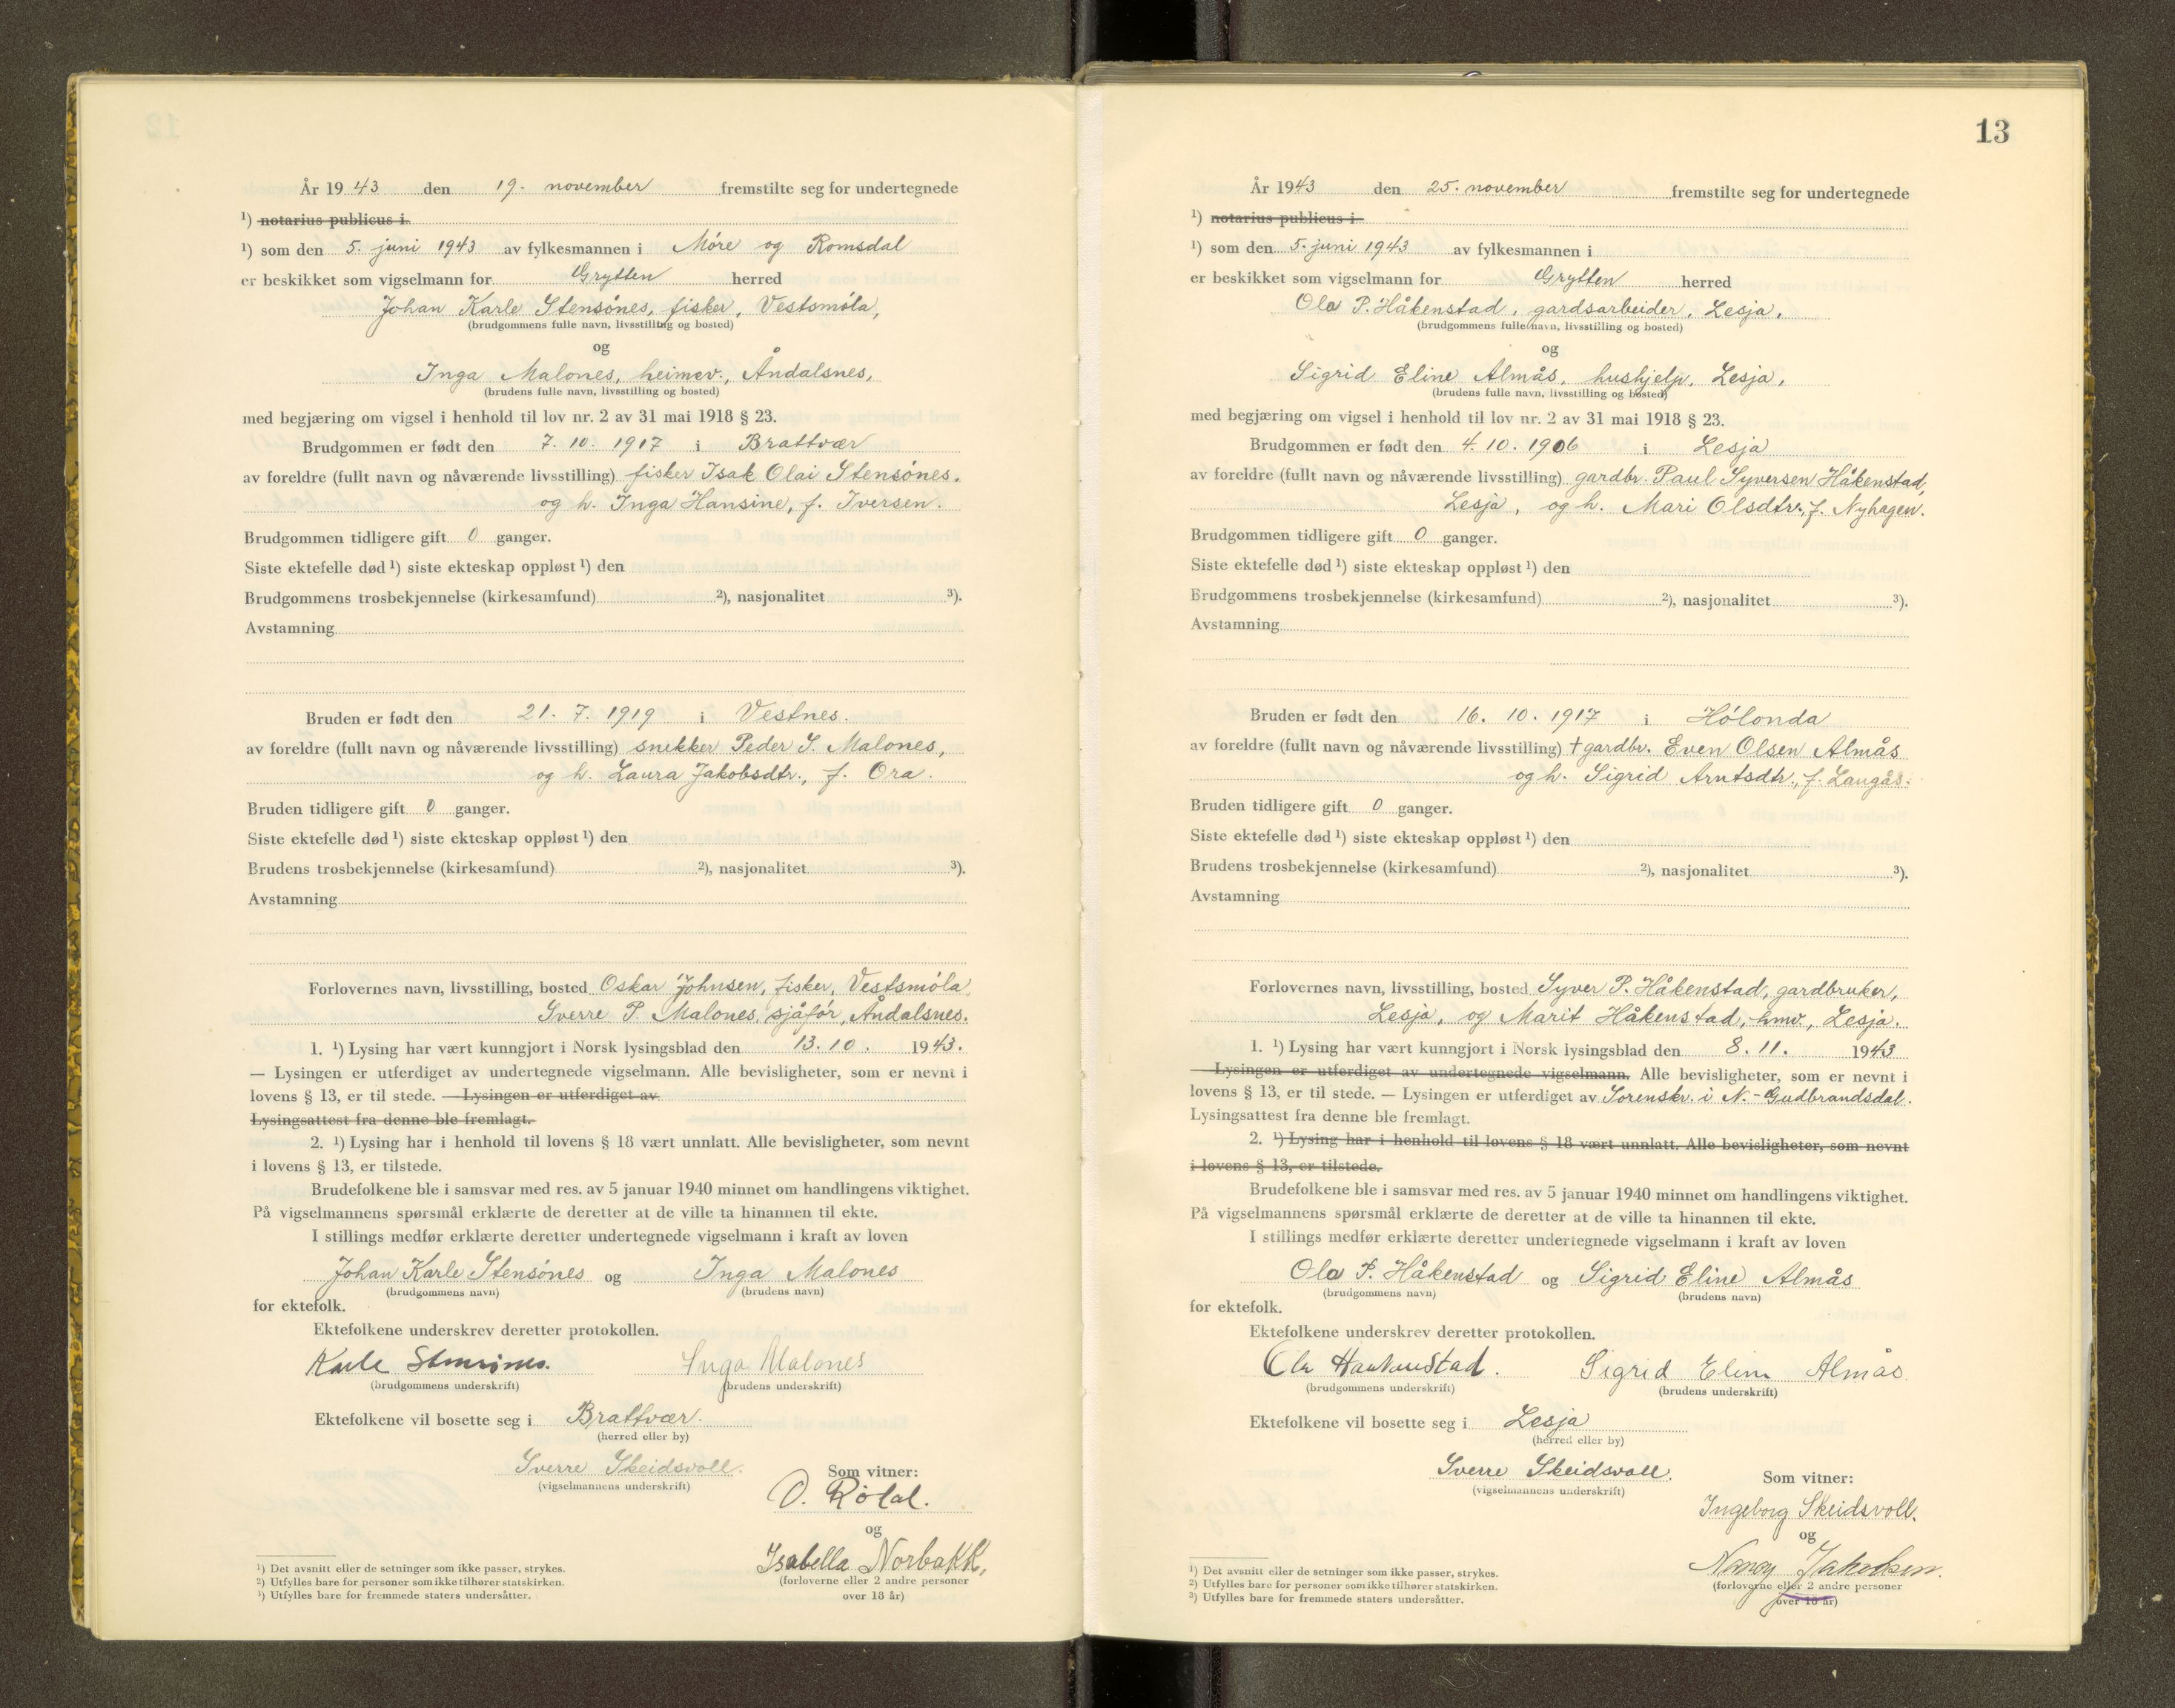 År 1943 den 19. november fremstilte seg for undertegnede
¹) notarius publicus i
¹) som den 5. juni 1943 av fylkesmannen i Móre og Romsdal
er beskikket som vigselmann for Grytten herred
Johan Karle Stensónes, fisker, Vestsmóla,
(brudgommens fulle navn, livsstilling og bosted)
og
Inga Malones, heimev., Åndalsnes,
(brudens fulle navn, livsstilling og bosted)
med begjæring om vigsel i henhold til lov nr. 2 av 31 mai 1918 § 23.
Brudgommen er født den 7. 10. 1917 i Brattvær
av foreldre (fullt navn og nåværende livsstilling) fisker Isak Olai Stensónes.
og h. Inga Hansine, f. Iversen.
Brudgommen tidligere gift 0 ganger.
Siste ektefelle død ¹) siste ekteskap oppløst ¹) den
Brudgommens trosbekjennelse (kirkesamfund) ²), nasjonalitet ³).
Avstamning
Bruden er født den 21. 7. 1919 i Vestnes.
av foreldre (fullt navn og nåværende livsstilling) snekker Peder S. Malones,
og h. Laura Jakobsdtr., f. Ora.
Bruden tidligere gift 0 ganger.
Siste ektefelle død ¹) siste ekteskap oppløst ¹) den
Brudens trosbekjennelse (kirkesamfund) ²), nasjonalitet ³).
Avstamning
Forlovernes navn, livsstilling, bosted Oskar Johnsen, fisker, Vestsmóla,
Sverre P. Malones, sjåfór, Åndalsnes.
1. ¹) Lysing har vært kunngjort i Norsk lysingsblad den 13. 10. 1943.
— Lysingen er utferdiget av undertegnede vigselmann. Alle bevisligheter, som er nevnt i
lovens § 13, er til stede. — Lysingen er utferdiget av
Lysingsattest fra denne ble fremlagt.
2. ¹) Lysing har i henhold til lovens § 18 vært unnlatt. Alle bevisligheter, som nevnt
i lovens § 13, er tilstede.
Brudefolkene ble i samsvar med res. av 5 januar 1940 minnet om handlingens viktighet.
På vigselmannens spørsmål erklærte de deretter at de ville ta hinannen til ekte.
I stillings medfør erklærte deretter undertegnede vigselmann i kraft av loven
Johan Karle Stensónes og Inga Malones
(brudgommens navn) (brudens navn)
for ektefolk.
Ektefolkene underskrev deretter protokollen.
Karle Stensónes. Inga Malones
(brudgommens underskrift) (brudens underskrift)
Ektefolkene vil bosette seg i Brattvær.
(herred eller by)
Sverre Skeidsvoll.
(vigselmannens underskrift)
Som vitner:
O. Rólal.
og
Isabella Norbakk,
(forloverne eller 2 andre personer
over 18 år)
¹) Det avsnitt eller de setninger som ikke passer, strykes.
²) Utfylles bare for personer som ikke tilhører statskirken.
³) Utfylles bare for fremmede staters undersåtter.
13
År 1943 den 25. november fremstilte seg for undertegnede
¹) notarius publicus i
¹) som den 5. juni 1943 av fylkesmannen i
er beskikket som vigselmann for Grytten herred
Ola P. Håkenstad, gardsarbeider, Lesja,
(brudgommens fulle navn, livsstilling og bosted)
og
Sigrid Eline Almås, hushjelp, Lesja,
(brudens fulle navn, livsstilling og bosted)
med begjæring om vigsel i henhold til lov nr. 2 av 31 mai 1918 § 23.
Brudgommen er født den 4. 10. 1906 i Lesja
av foreldre (fullt navn og nåværende livsstilling) gardbr. Paul Syversen Håkenstad,
Lesja, og h. Mari Olsdtr., f. Nyhagen.
Brudgommen tidligere gift 0 ganger.
Siste ektefelle død ¹) siste ekteskap oppløst ¹) den
Brudgommens trosbekjennelse (kirkesamfund) ²), nasjonalitet ³).
Avstamning
Bruden er født den 16. 10. 1917 i Hólonda
av foreldre (fullt navn og nåværende livsstilling) † gardbr. Even Olsen Almås
og h. Sigrid Arntsdtr., f. Langås.
Bruden tidligere gift 0 ganger.
Siste ektefelle død ¹) siste ekteskap oppløst ¹) den
Brudens trosbekjennelse (kirkesamfund) ²), nasjonalitet ³).
Avstamning
Forlovernes navn, livsstilling, bosted Syver P. Håkenstad, gardbruker,
Lesja, og Marit Håkenstad, hmv., Lesja.
1. ¹) Lysing har vært kunngjort i Norsk lysingsblad den 8. 11. 1943
— Lysingen er utferdiget av undertegnede vigselmann. Alle bevisligheter, som er nevnt i
lovens § 13, er til stede. — Lysingen er utferdiget av Sorenskr. i N.-Gudbrandsdal.
Lysingsattest fra denne ble fremlagt.
2. ¹) Lysing har i henhold til lovens § 18 vært unnlatt. Alle bevisligheter, som nevnt
i lovens § 13, er tilstede.
Brudefolkene ble i samsvar med res. av 5 januar 1940 minnet om handlingens viktighet.
På vigselmannens spørsmål erklærte de deretter at de ville ta hinannen til ekte.
I stillings medfør erklærte deretter undertegnede vigselmann i kraft av loven
Ola P. Håkenstad og Sigrid Eline Almås
(brudgommens navn) (brudens navn)
for ektefolk.
Ektefolkene underskrev deretter protokollen.
Ola Haakenstad. Sigrid Eline Almås
(brudgommens underskrift) (brudens underskrift)
Ektefolkene vil bosette seg i Lesja
(herred eller by)
Sverre Skeidsvoll.
(vigselmannens underskrift)
Som vitner:
Ingeborg Skeidsvoll.
og
Nancy Jakobsen.
(forloverne eller 2 andre personer
over 18 år)
¹) Det avsnitt eller de setninger som ikke passer, strykes.
²) Utfylles bare for personer som ikke tilhører statskirken.
³) Utfylles bare for fremmede staters undersåtter.